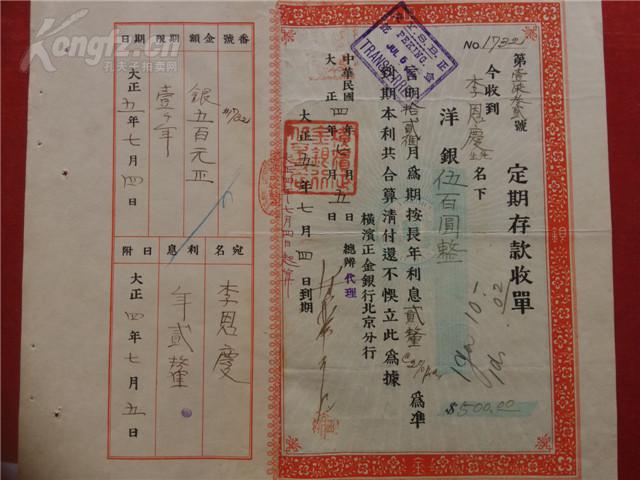 定期存款收單
No. 1732
第壹柒叁貳號
今收到
李恩慶先生名下
洋銀伍百圓整
$500.00
言明拾貳個月爲期按長年利息貳釐爲準
到期本利共合算清付還不悞立此爲據
橫濱正金銀行北京分行
總辦代理
中華民國
大正四年七月五日
大正五年七月四日到期
大正四年七月四日起算
PEKING.
JUL 5
TRANSFERRED
番號
金額
期限
期日
1732
銀五百元正
壹ケ年
大正五年七月四日
宛名
利息
日附
李恩慶
年貳釐
大正四年七月五日
Kongfz.com
孔夫子拍卖网